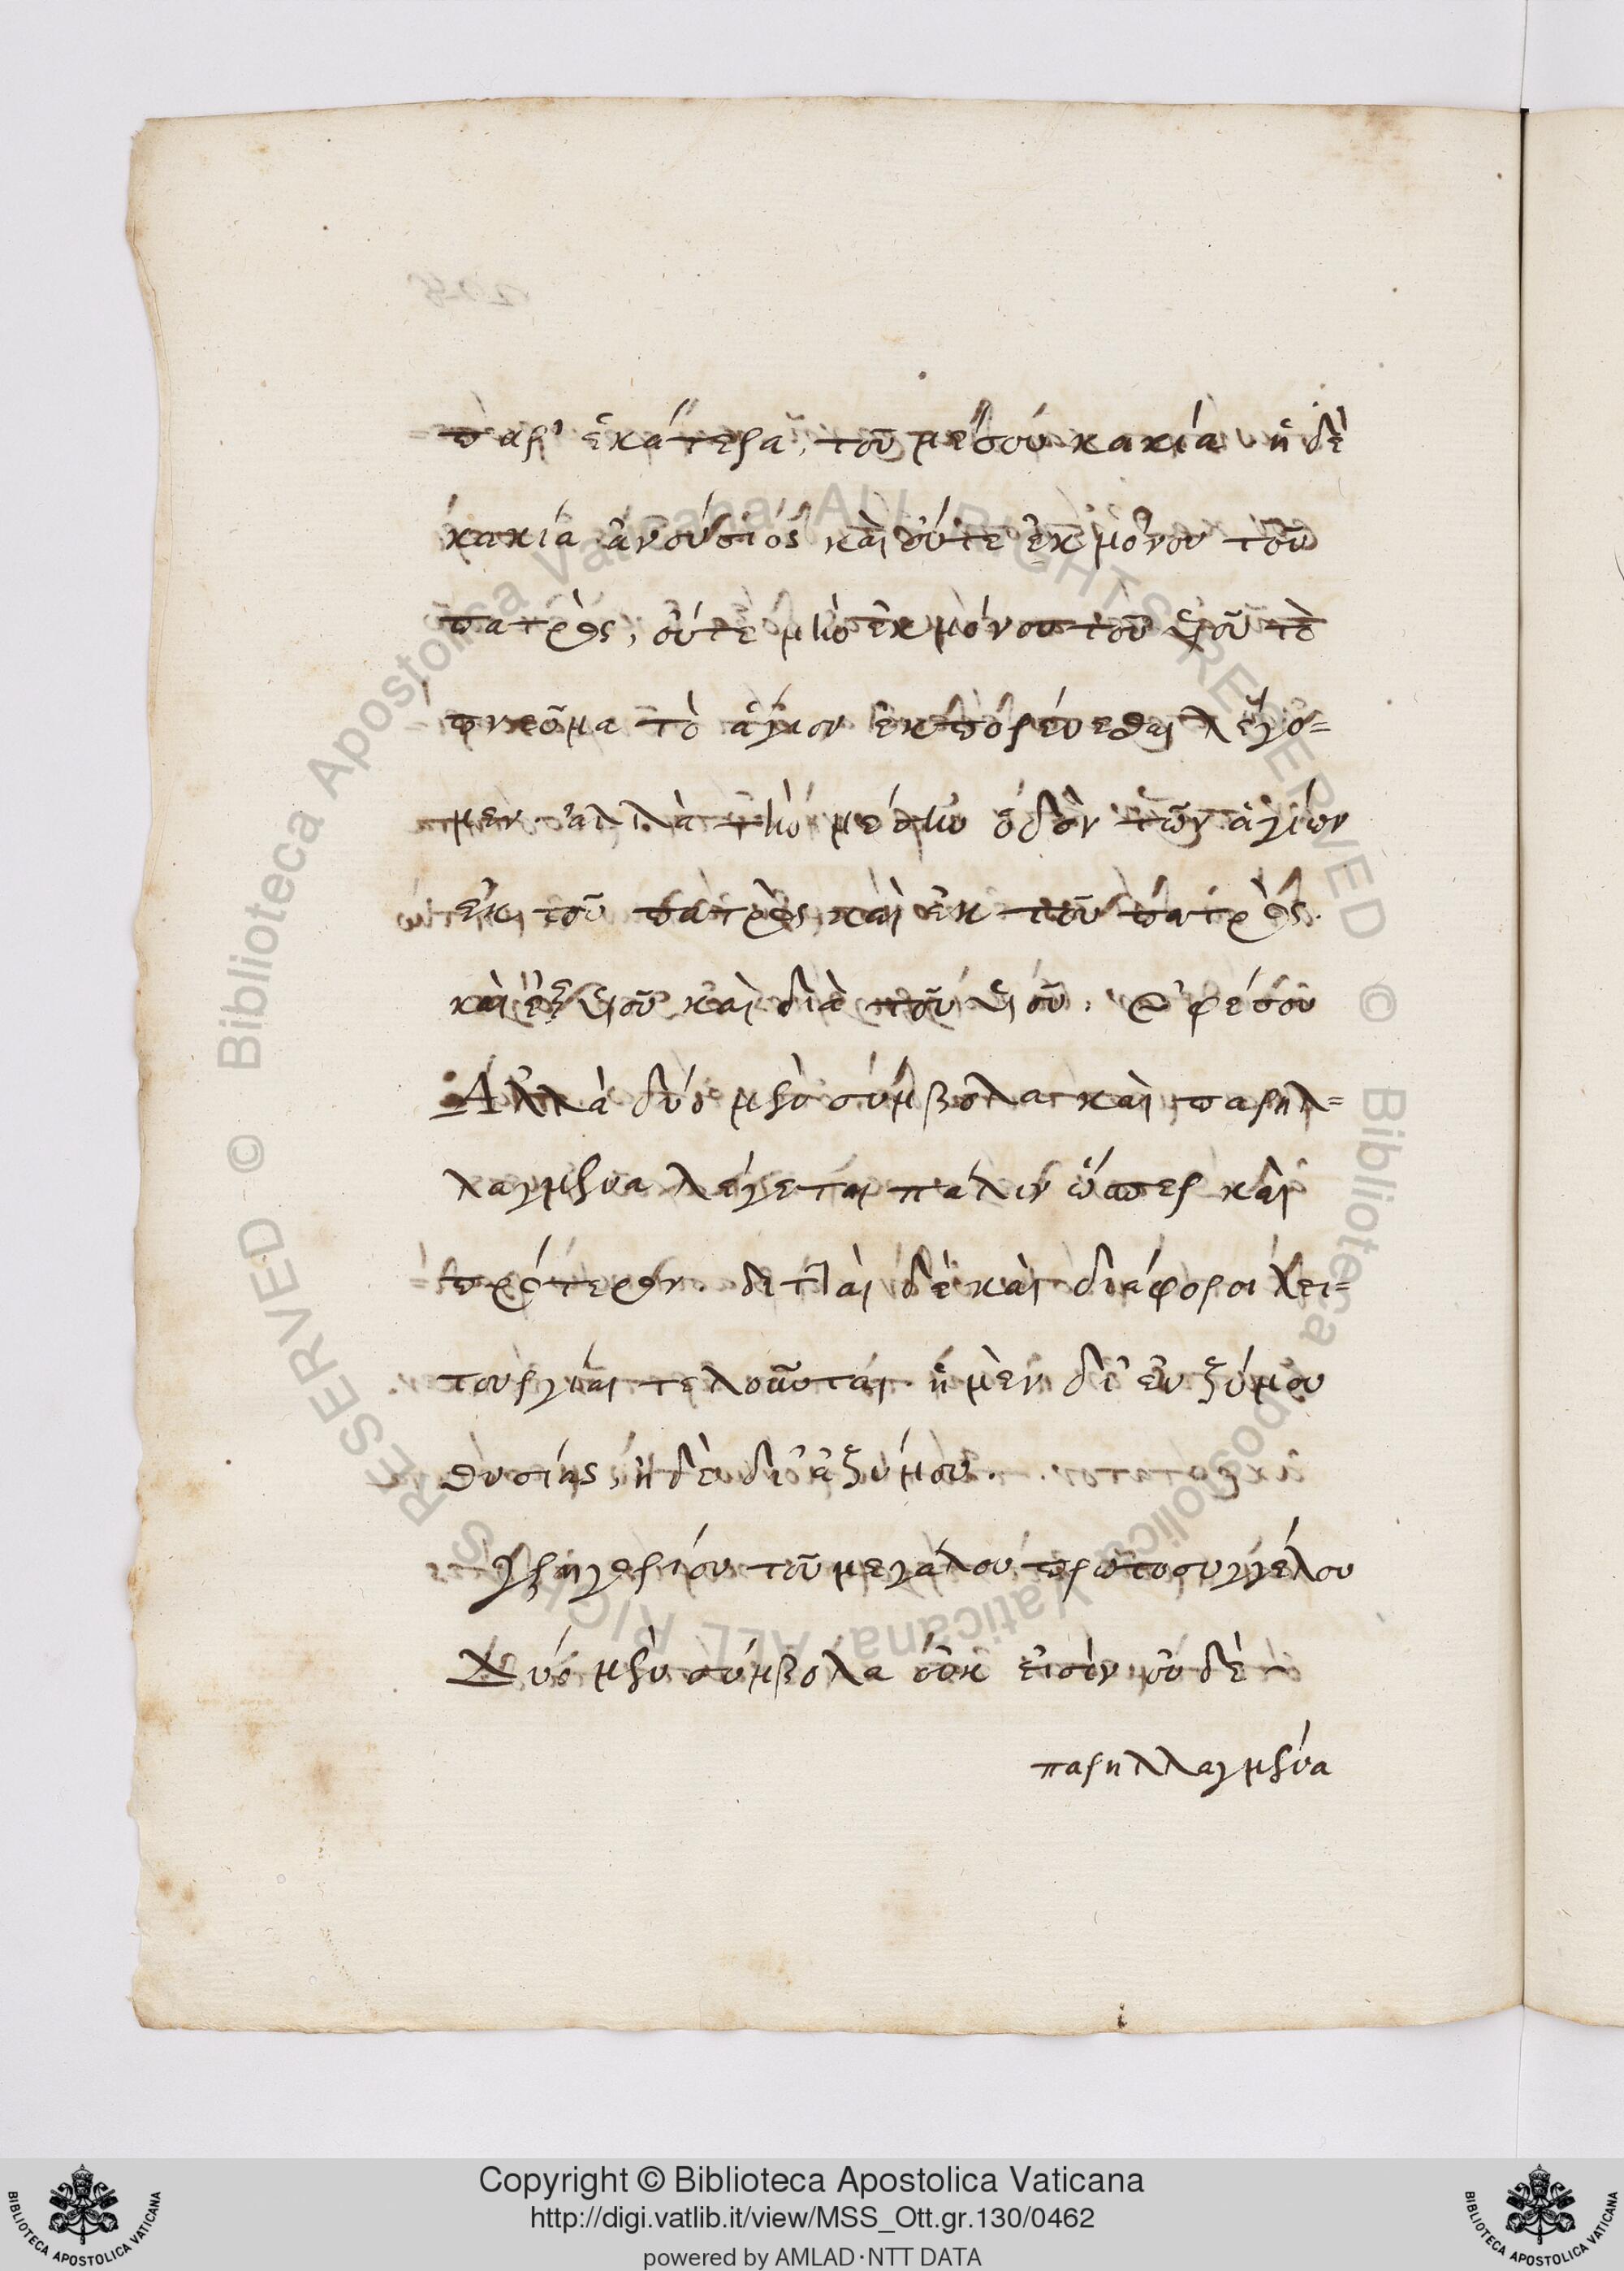 παρ' ἑκάτερα, τοῦ μέσου κακία ἡ δὲ
κακία ἀνούσιός καὶ οὔτε ἐκ μόνου τοῦ
πατρὸς, οὔτε μὴν ἐκ μόνου τοῦ υἱοῦ τὸ
πνεῦμα τὸ ἅγιον ἐκπορεύεσθαι λέγο=
μεν. ἀλλὰ τὴν μέσην ὁδὸν τῶν ἁγίων
ἐκ τοῦ πατρὸς καὶ ἐκ τοῦ πατρὸς.
καὶ ἐξ υἱοῦ καὶ διὰ τοῦ υἱοῦ. Ἐφέσου
Ἀλλὰ δύο μὲν σύμβολα καὶ παρηλ=
λαγμένα λέγεται πάλιν ὥσπερ καὶ
πρότερον. διτταὶ δὲ καὶ διάφοροι λει=
τουργίαι τελοῦνται. ἡ μὲν δι' ἐνζύμου
θυσίης, ἡ δὲ δι' ἀζύμου.
Γρηγορίου τοῦ μεγάλου πρωτοσυγγέλου
Δύο μὲν σύμβολα οὔκ εἰσὶν οὐδὲ
παρηλλαγμένα
Copyright © Biblioteca Apostolica Vaticana
http://digi.vatlib.it/view/MSS_Ott.gr.130/0462
powered by AMLAD·NTT DATA